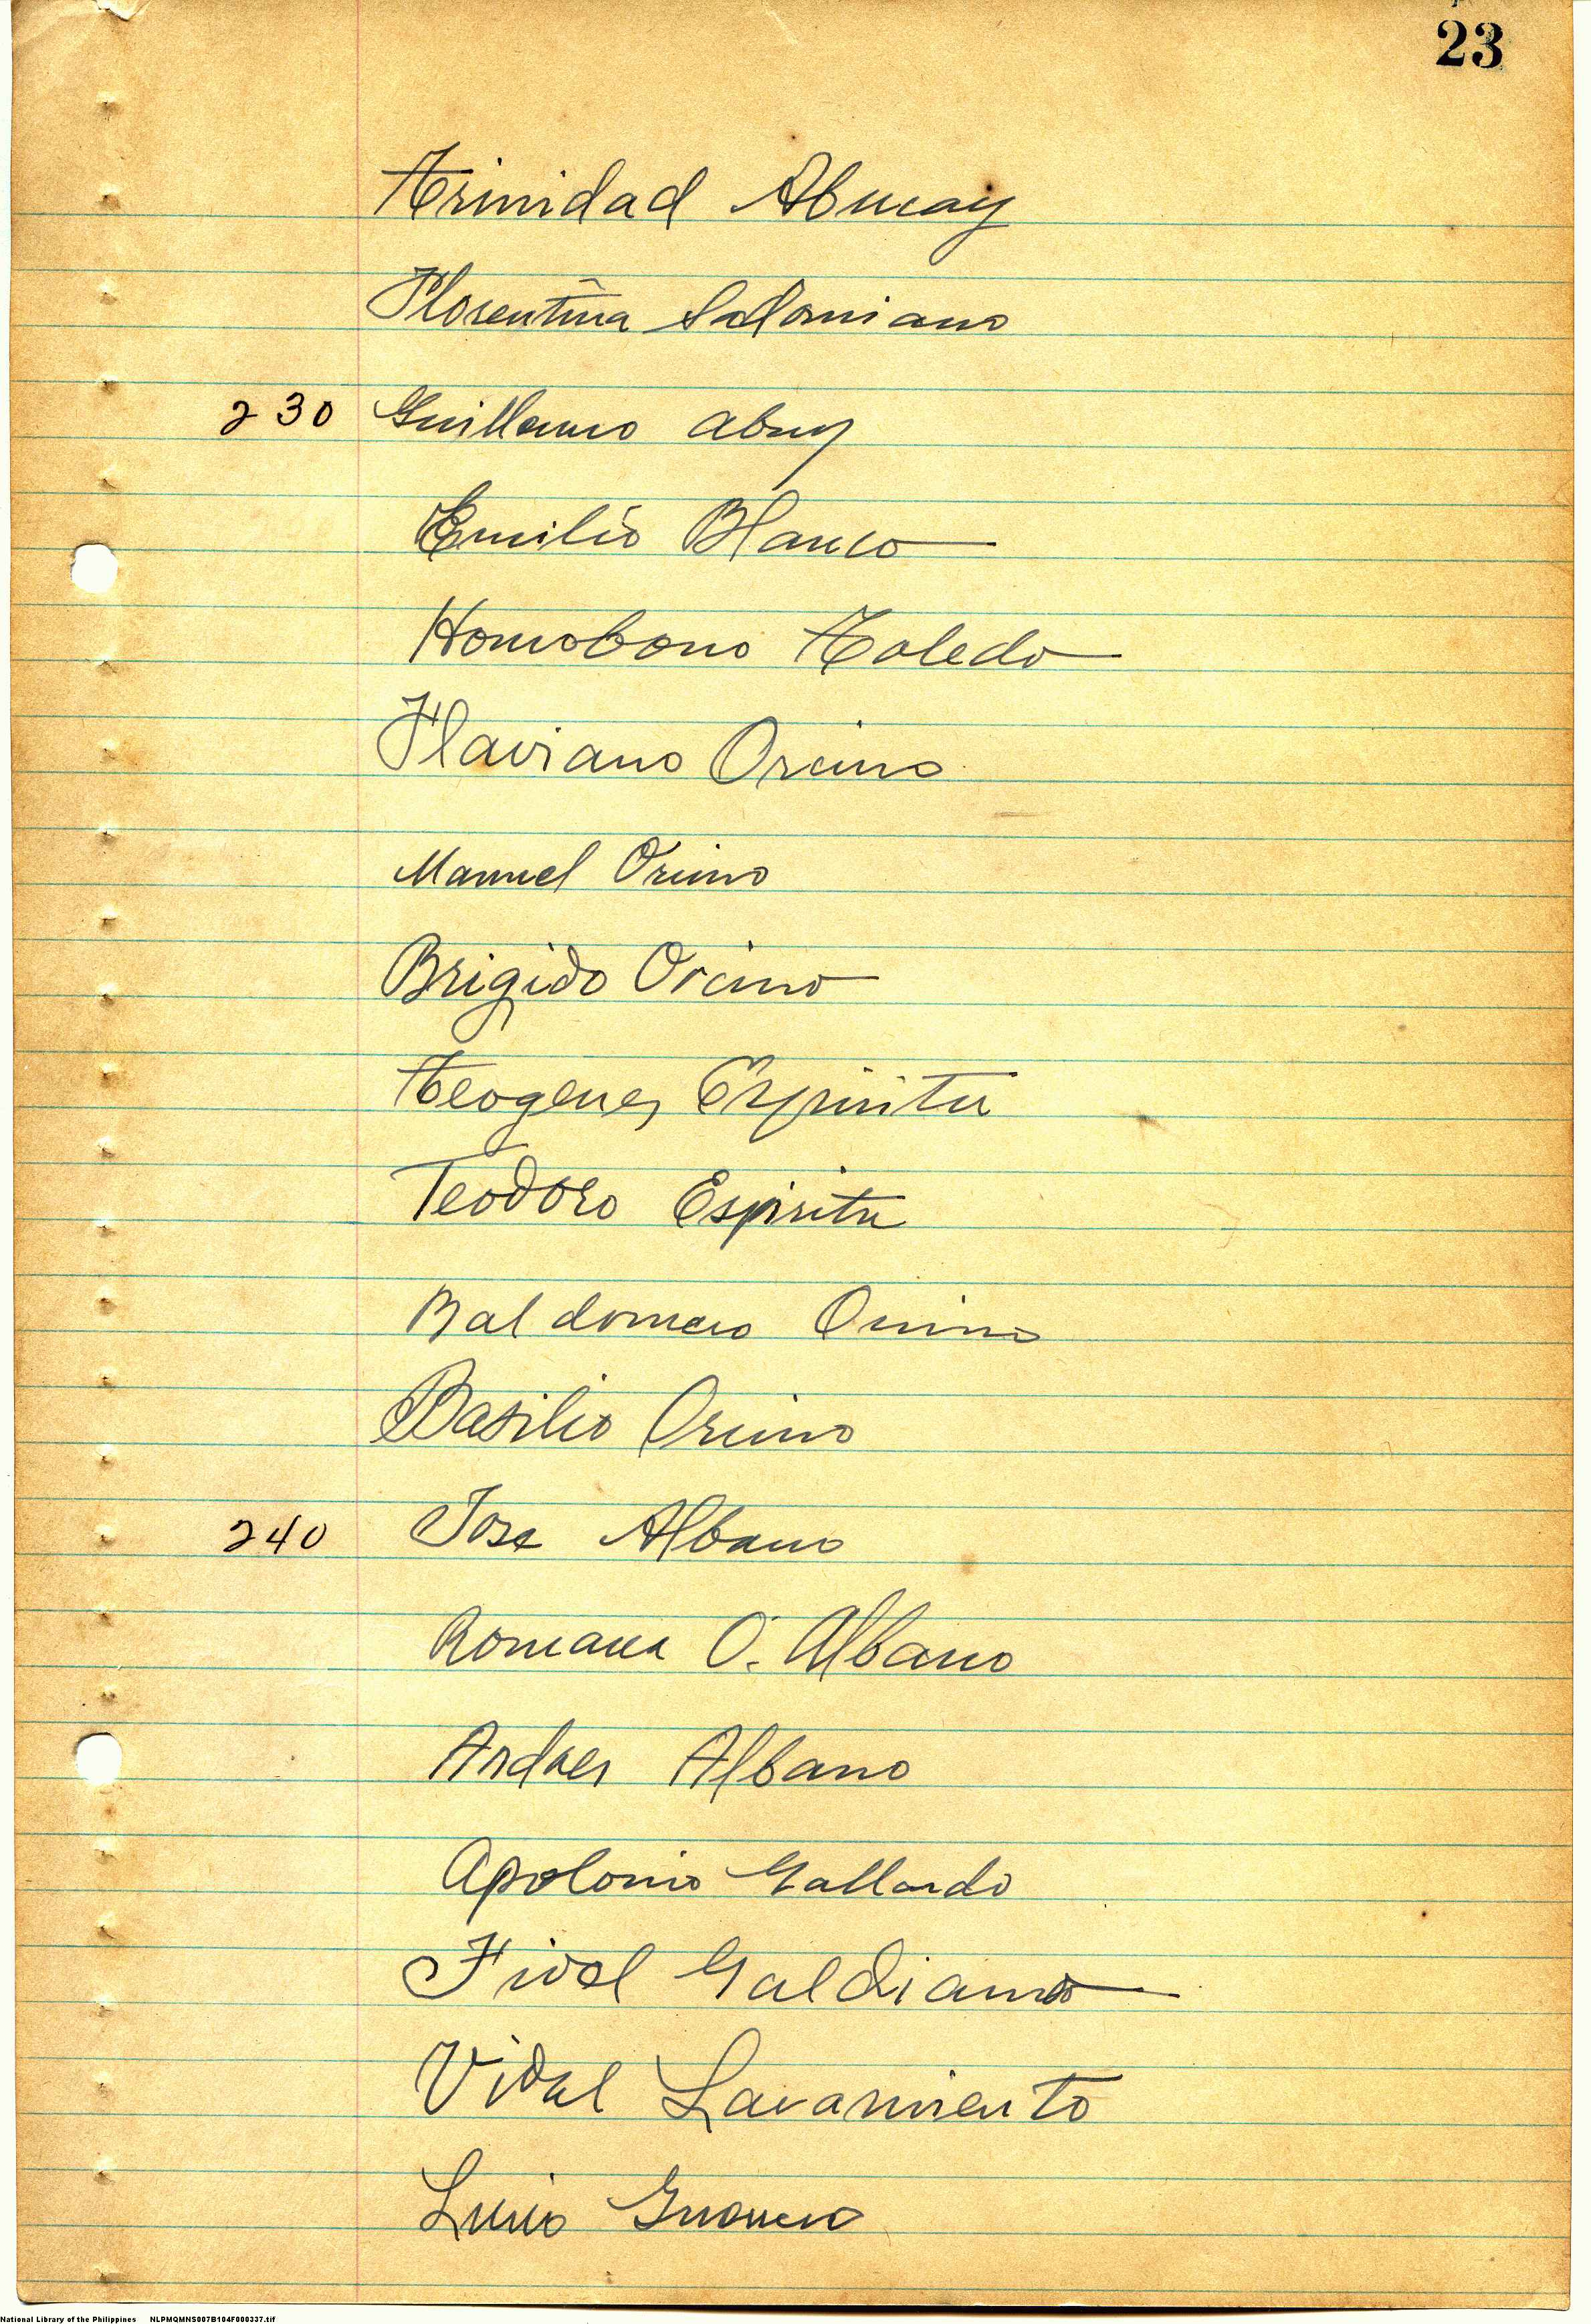 23
Trinidad Abucay
Florentina Solomiano
230 Guillermo Abuy
Emilio Blanco
Homobono Toledo
Flaviano Orcino
Manuel Orcino
Brigido Orcino
Teogenes Espiritu
Teodoro Espiritu
Baldomero Orcino
Basilio Orcino
240 Jose Albano
Romana O. Albano
Andres Albano
Apolonio Gallardo
Fidel Galdiano
Vidal Lavarmiento
Lucio
National Library of the Philippines NLPMQMNS007B104F000337.tif